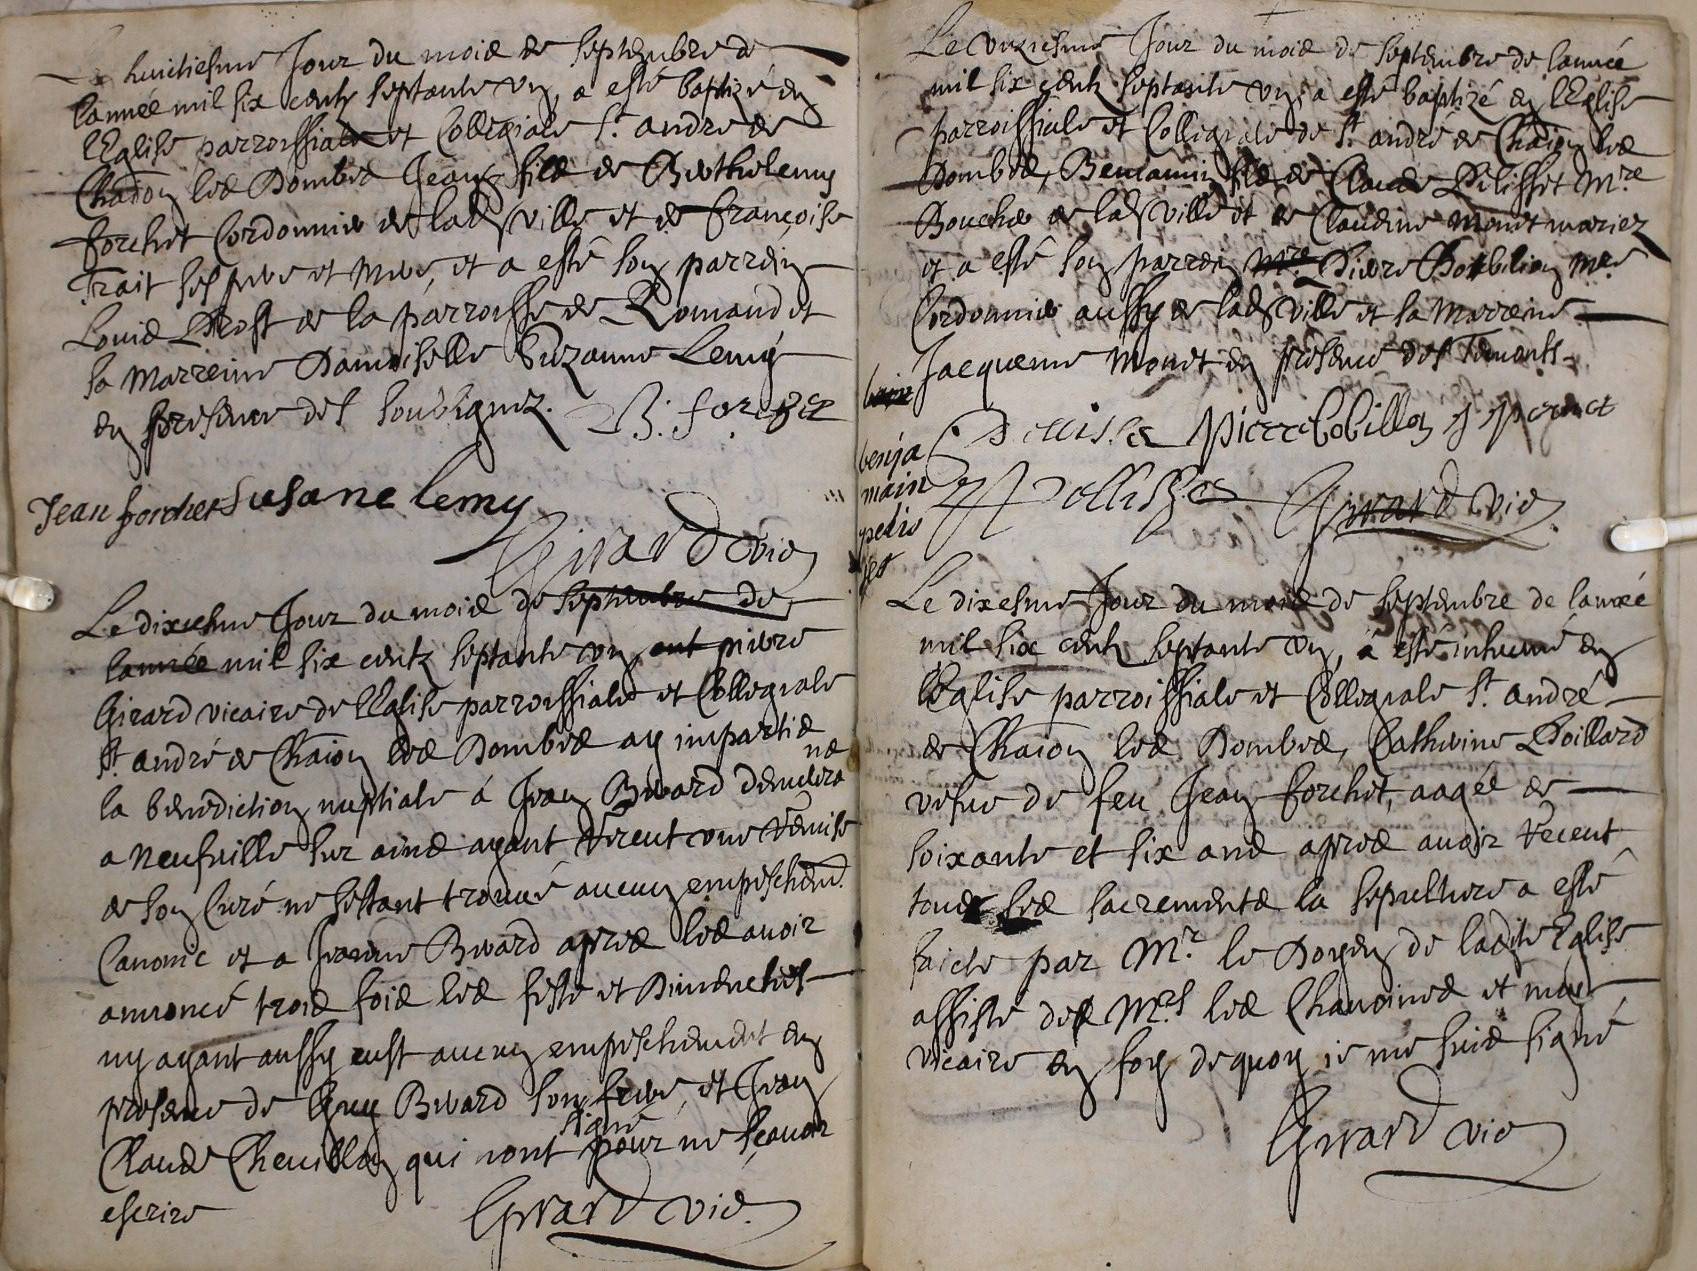 huictiesme Jour du mois de septembre de
lannée mil six centz septante vn, a esté baptizé en
lEglise parroissiale et Collegiale St. andré de
Chaīon les Dombes Jean filz de Berthelemy
forchet Cordonnier de lad. ville et de françoise
Trait ses pere et mere, et a esté son parrein
Louis Prost de la parroisse de Romand et
sa Marreine Damoiselle Suzanne Lemy
en presence des soubsignez. B. forchet
Jean forchet susane lemy
Girard vic
Le dixiesme Jour du mois de septembre de
lannée mil six centz septante vn, pierre
Girard vicaire de lEglise parroissiale et Collegiale
St. andré de Chaīon les Dombes ay imparti
la benediction nuptiale á Jean Berard
a Neufville sur ains ayant receut vne remise
de son Curé ne sestant trouué aucun empeschemt.
Canonic et a Jeanne Berard apres les auoir
annoncé trois fois les feste et Dimenches
ny ayant aussy eust aucun empeschement en
presence de Guy Berard son frere, et Jean
signé
Claude Cheuillon qui nont pour ne scauoir
escrire Girard vic.
Le vnziesme Jour du mois de septembre de lannée
mil six centz septante vn, a esté baptizé en lEglise
parroissiale et Collegiale de St. andré de Chaīon les
Dombes, Beniamin filz de Claude Pelisset Mre
Boucher de lad. ville et de Claudine Monet mariez
et a esté son parrein Mre. Pierre Bobilion Mre
Cordonnier aussy de lad. ville et sa Marreine
Jacqueme Monet en presence des
C Pelisse Pierre bobillon
benja
main
pelis
set
Pellisse Girard vic.
Le dixesme Jour du mois de septembre de lannée
mil six centz septante vn, a esté inhumé en
lEglise parroissiale et Collegiale St. andré
de Chaīon les Dombes, Catherine Poillard
vefue de feu Jean forchet, aagée de
soixante et six ans apres auoir receut
tous les sacrements la sepulture a esté
faicte par Mr. le Doyen de ladite Eglise
assisté des Mrs les Chanoines et moy
vicaire en foy dequoy ie me suis signé
Girard vic